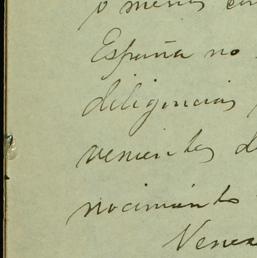 o menos con
España no
diligencias
venientes d
nocimiento
Venez